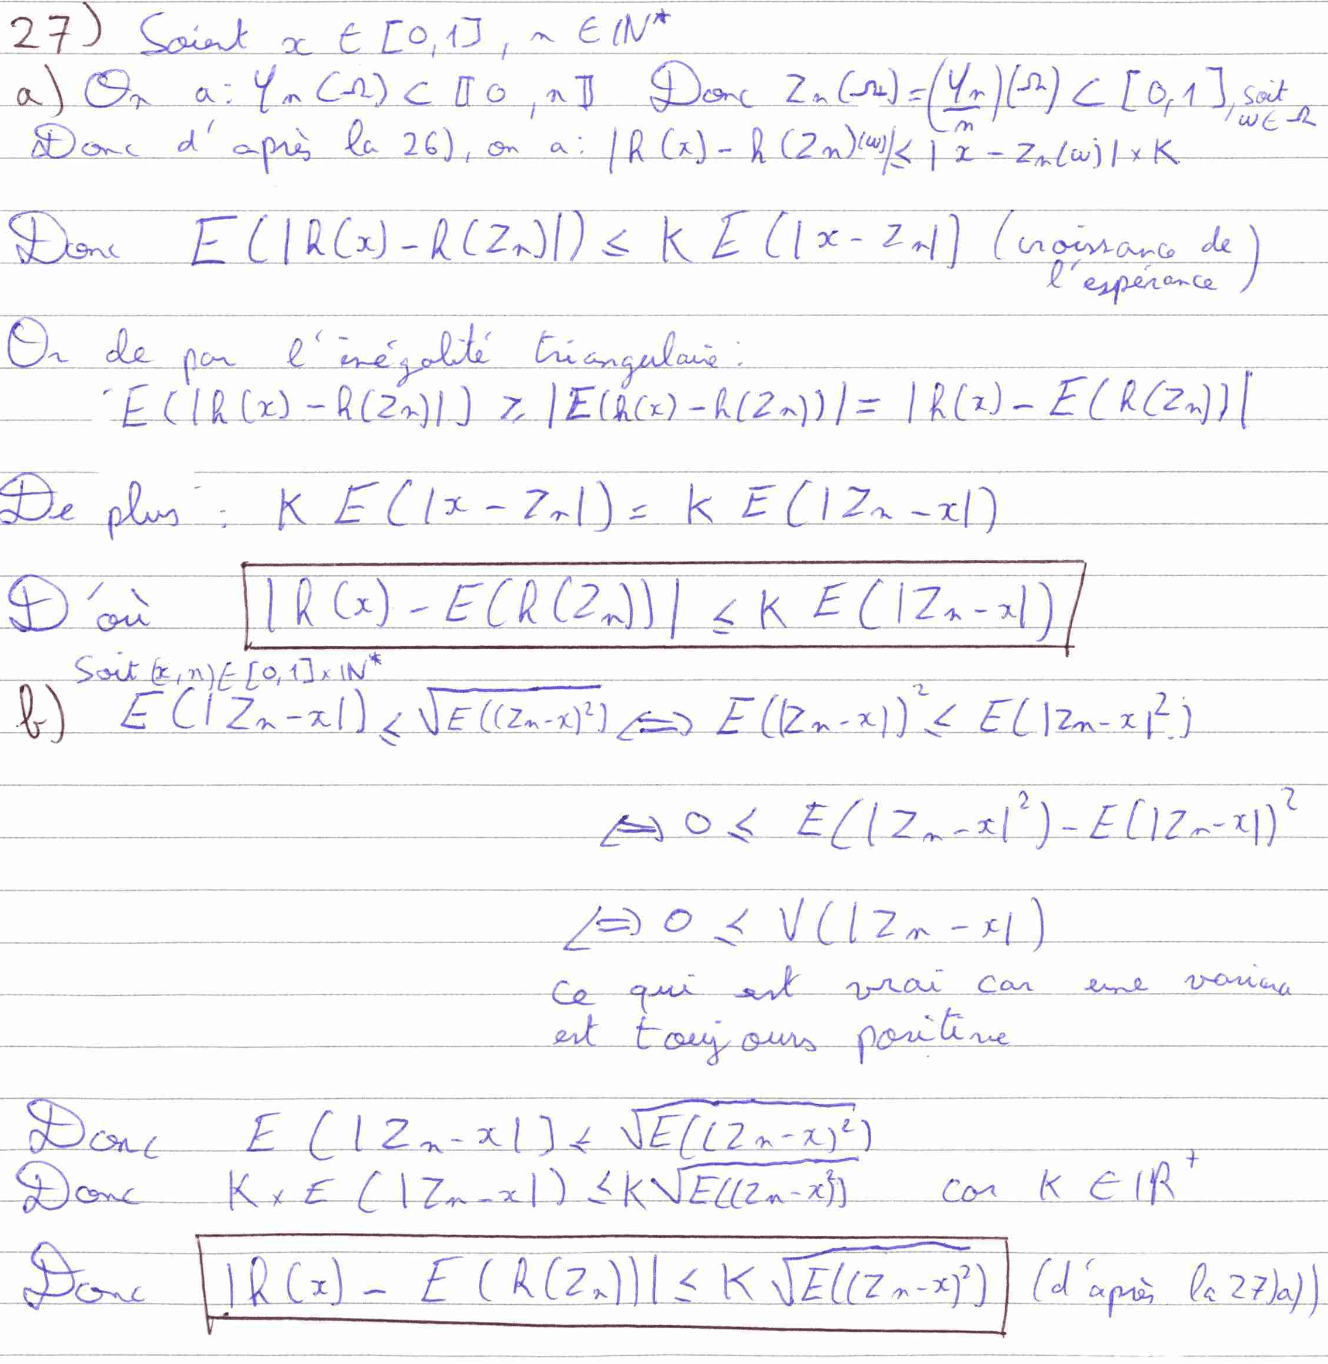 27) Soient x ∈ [0,1], n ∈ ℕ*
a) On a : Yn(Ω) ⊂ ⟦0, n⟧ Donc Zn(Ω) = (Yn/n)(Ω) ⊂ [0,1], soit ω ∈ Ω
Donc d'après la 26), on a : |h(x) - h(Zn)(ω)| ≤ |x - Zn(ω)| × K
Donc E(|h(x) - h(Zn)|) ≤ K E(|x - Zn|) (croissance de l'espérance)
Or de par l'inégalité triangulaire :
E(|h(x) - h(Zn)|) ≥ |E(h(x) - h(Zn))| = |h(x) - E(h(Zn))|
De plus : K E(|x - Zn|) = K E(|Zn - x|)
D'où |h(x) - E(h(Zn))| ≤ K E(|Zn - x|)
Soit (x,n) ∈ [0,1] × ℕ*
b) E(|Zn - x|) ≤ √E((Zn-x)²) ⟺ E(|Zn - x|)² ≤ E(|Zn - x|²)
⟺ 0 ≤ E(|Zn - x|²) - E(|Zn - x|)²
⟺ 0 ≤ V(|Zn - x|)
ce qui est vrai car une variance
est toujours positive
Donc E(|Zn - x|) ≤ √E((Zn-x)²)
Donc K × E(|Zn - x|) ≤ K√E((Zn-x)²) car K ∈ ℝ⁺
Donc |h(x) - E(h(Zn))| ≤ K √E((Zn-x)²) (d'après la 27)a))